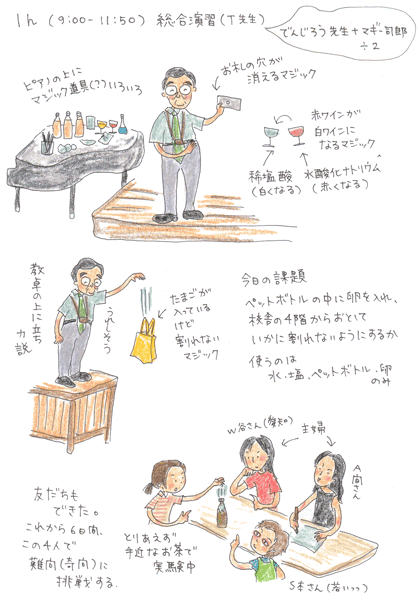 1ん (9:00-11:50) 総合演習(T先生)
でんじろう先生+マギー司郎
÷2
ピアノの上に
マジック道具(?)いろいろ
お札の穴が
消えるマジック
赤ワインが
白ワインに
なるマジック
稀塩酸
(白くなる)
水酸化ナトリウム
(赤くなる)
教卓の上に立ち
力説
うれしそう
たまごが
入っている
けど
割れない
マジック
今日の課題
ペットボトルの中に卵を入れ、
校舎の4階からおとして
いかに割れないようにするか
使うのは
氷・塩・ペットボトル・卵
のみ
W谷さん(愛知)
主婦
A間さん
友だちも
できた。
これから6日間、
この4人で
難問(奇問)に
挑戦する。
とりあえず
手近なお茶で
実験中
S本さん(若いっっ)